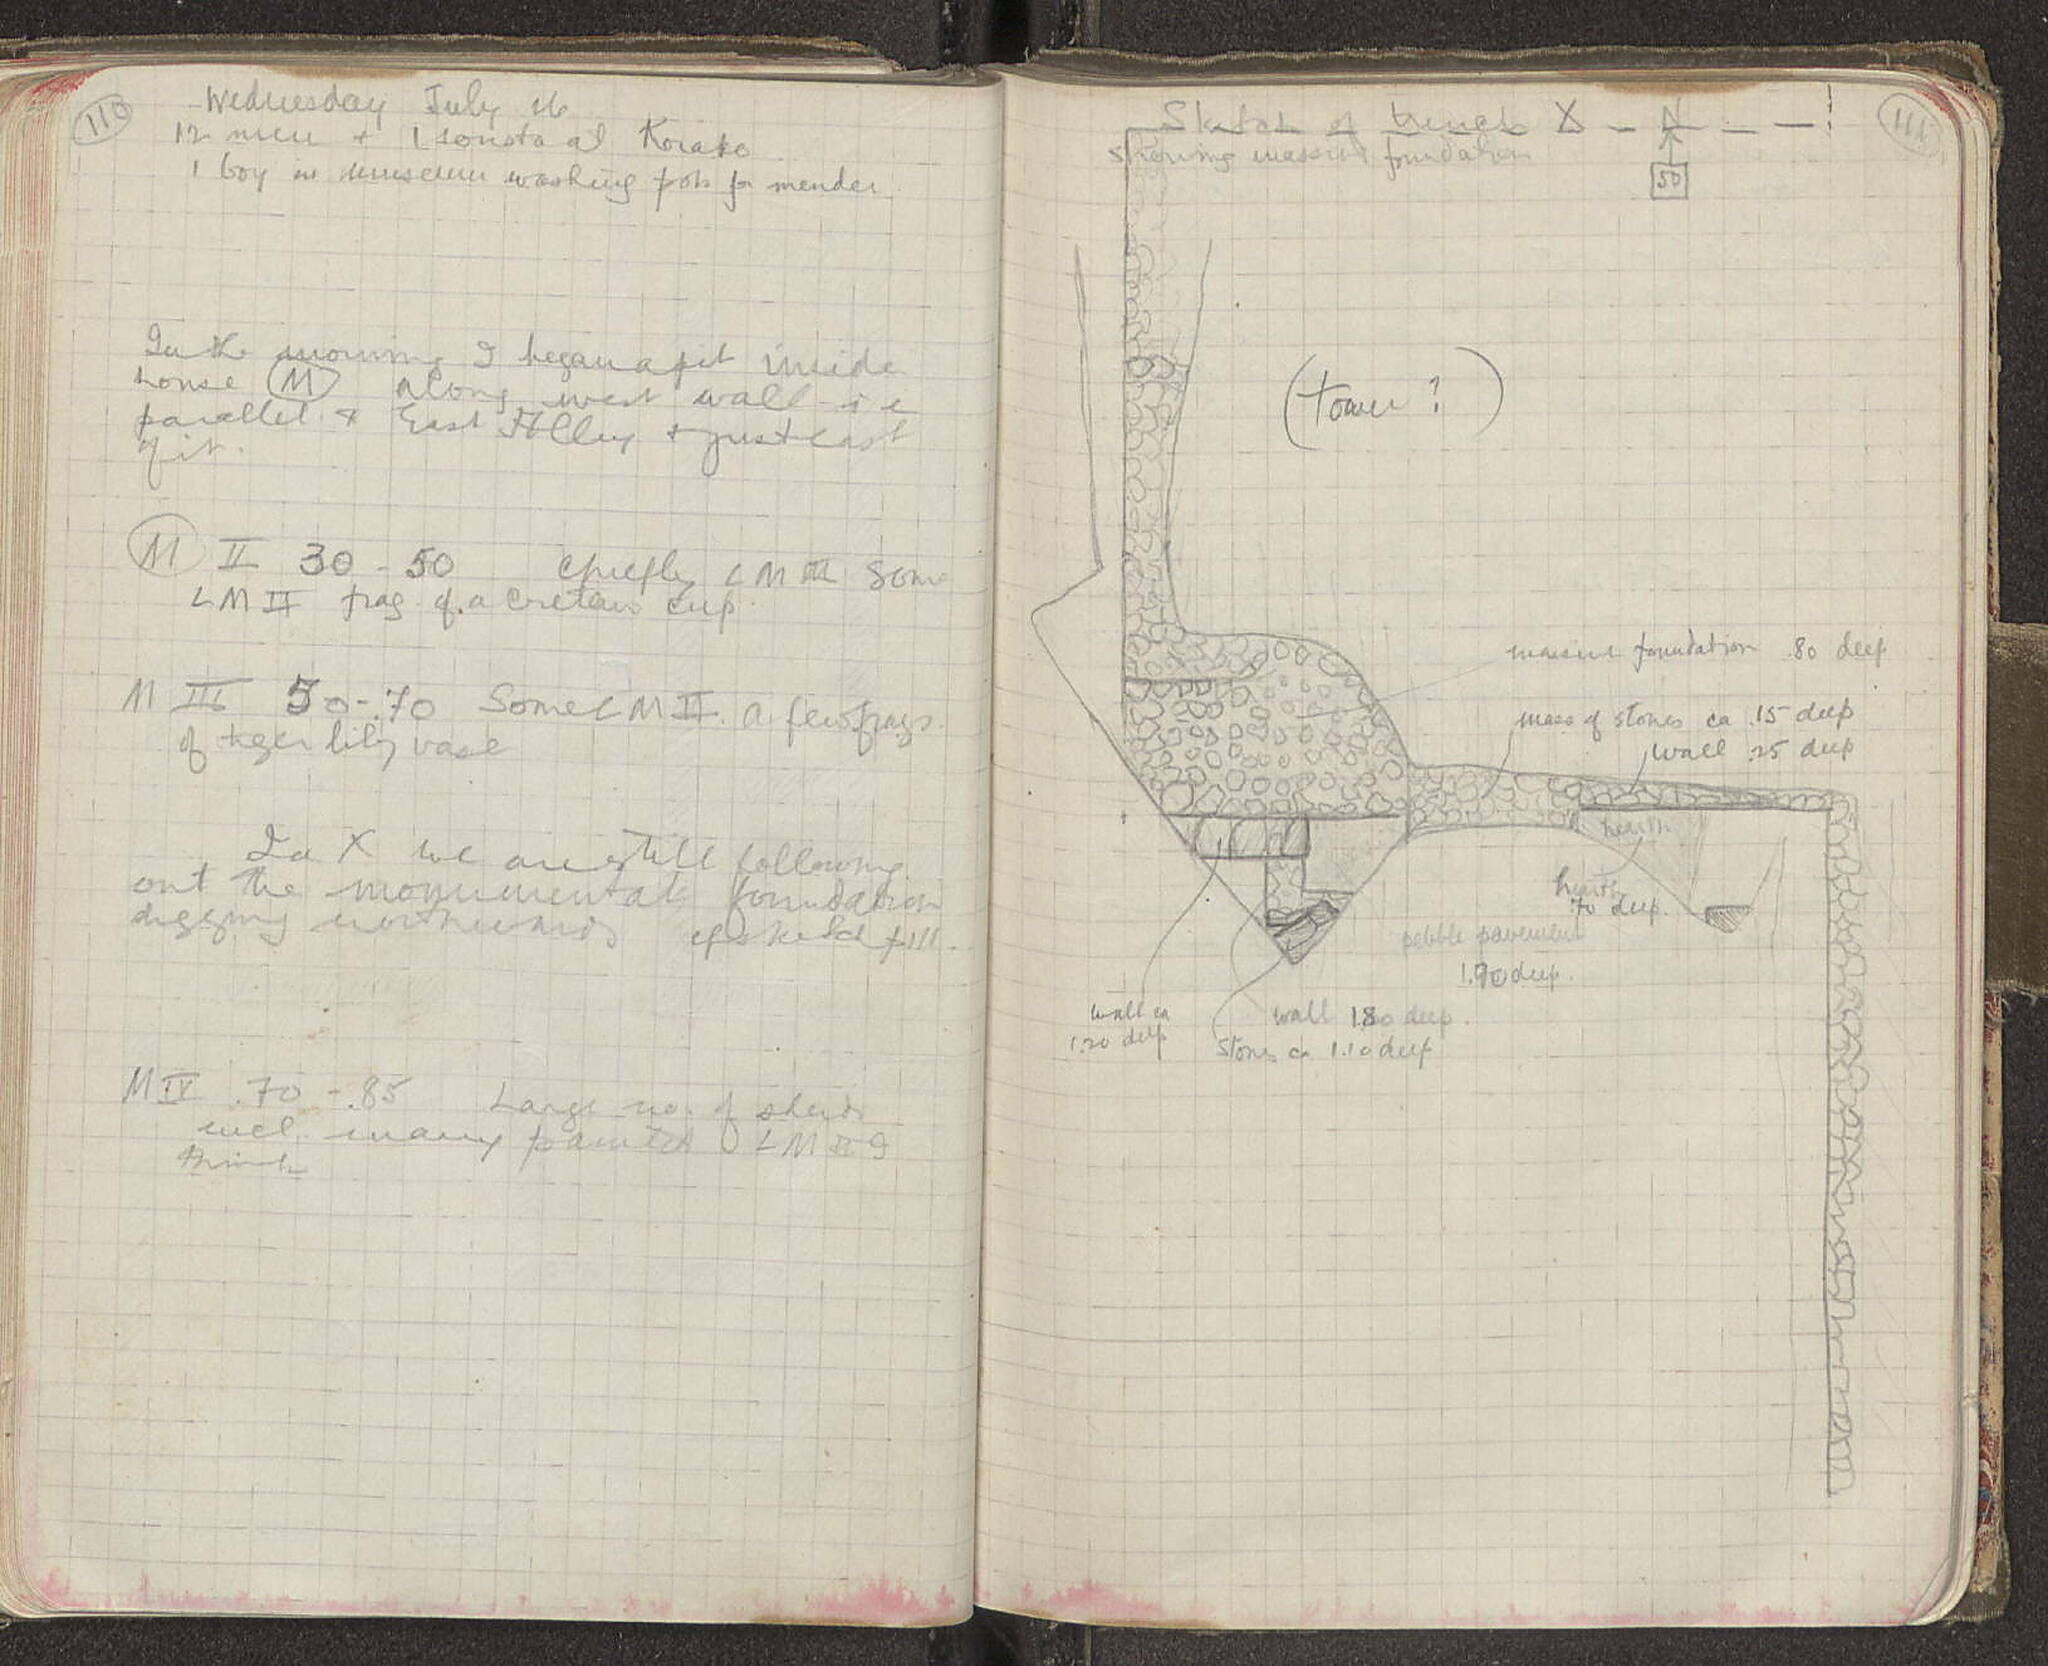 110
Wednesday July 16
12 men + 1 sousta at Korako
1 boy in museum washing pots for mender
In the morning I began a pit inside
house M along west wall i e
parallel & East Alley & just east
of it.
M II 30 - 50 Chiefly LM III Some
LM II frag. of a Cretan cup.
M III 50-.70 Some LM II. a few frags.
of tiger lily vase
In X we are still following
out the monumental foundation
digging northwards cf sketch p 111.
M IV .70 - .85 Large no. of sherds
incl. many painted LM II I
think
111
Sketch of trench X N
showing massive foundation
50
(tower?)
massive foundation .80 deep
mass of stones ca .15 deep
wall .25 deep
hearth
hearth
70 deep.
pebble pavement
1.70 deep.
wall ca
1.20 deep
wall 1.80 deep.
stones ca 1.10 deep